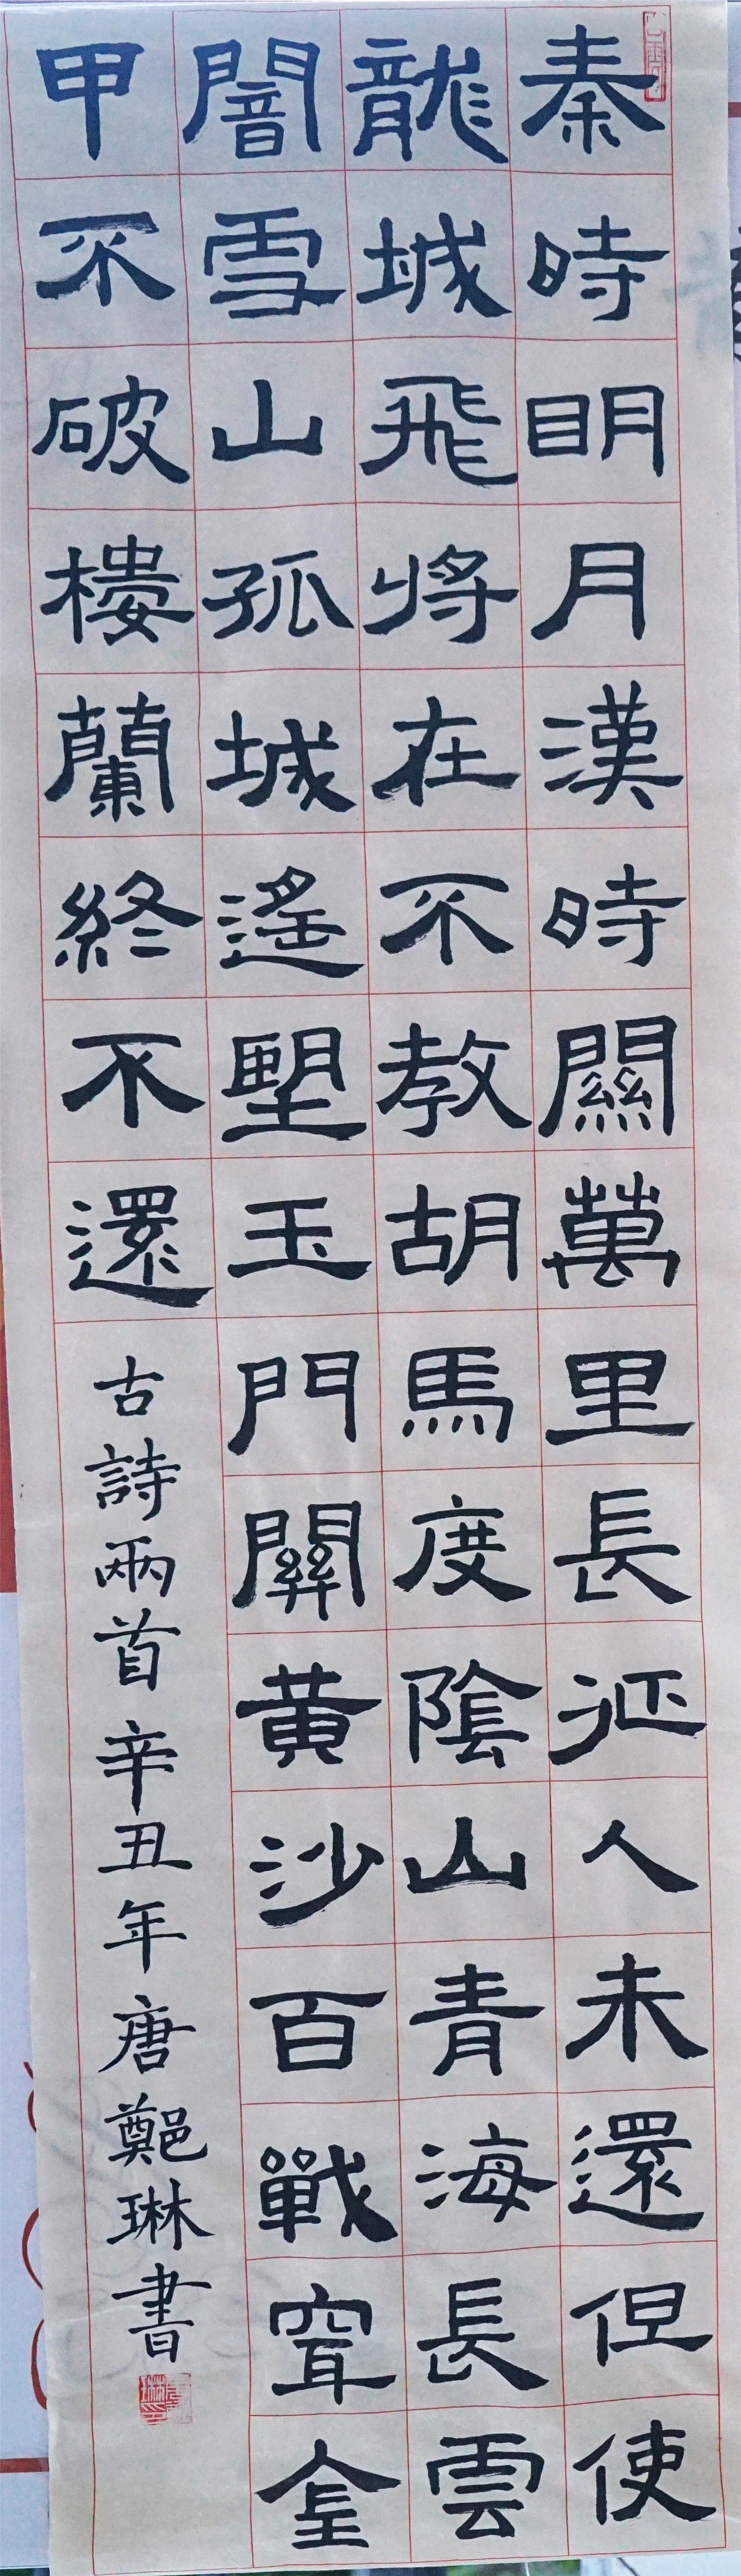 秦時明月漢時關萬里長征人未還但使
龍城飛將在不教胡馬度陰山青海長雲
闇雪山孤城遙朢玉門關黃沙百戰穿金
甲不破樓蘭終不還
古詩兩首辛丑年唐鄭琳書